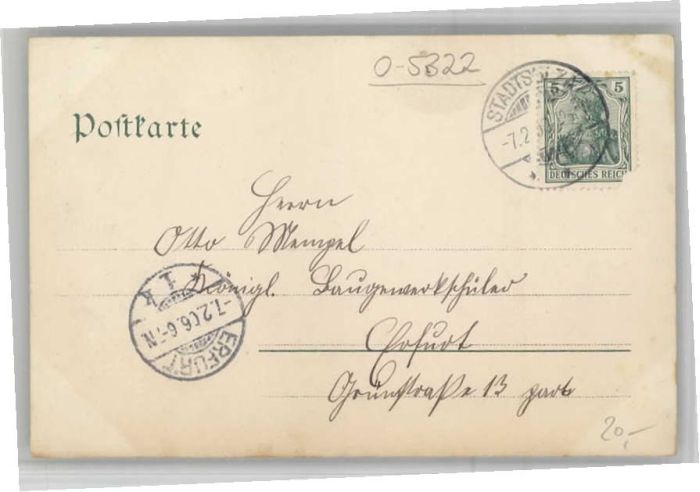 O-5322
Postkarte
STADTSULZA
-7.2.0
5 5
DEUTSCHES REICH
Herrn
Otto Mempel
Königl. Baugewerkschüler
Erfurt
Grünstraße 13 part
ERFURT
-7.2.06.6-7N.
* 1 k
20,-